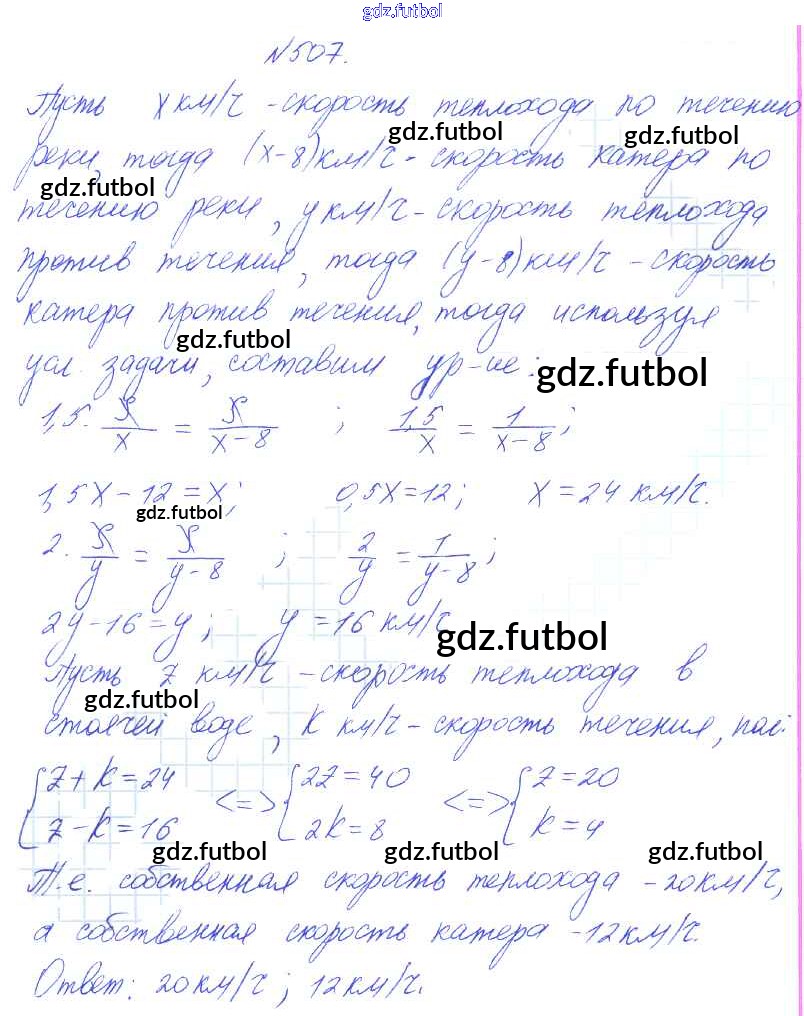 gdz.futbol
№507.
Пусть x км/ч - скорость теплохода по течению
gdz.futbol gdz.futbol
реки, тогда (x-8)км/ч - скорость катера по
gdz.futbol
течению реки, y км/ч - скорость теплохода
против течения, тогда (y-8)км/ч - скорость
катера против течения, тогда используя
gdz.futbol
усл. задачи, составим ур-ие:
gdz.futbol
1,5. S/x = S/(x-8) ; 1,5/x = 1/(x-8);
1,5x-12=x; 0,5x=12; x=24 км/ч.
gdz.futbol
2. S/y = S/(y-8) ; 2/y = 1/(y-8);
2y-16=y; y=16 км/ч
gdz.futbol
Пусть z км/ч - скорость теплохода в
gdz.futbol
стоячей воде, k км/ч - скорость течения,
{z+k=24 <=> {2z=40 <=> {z=20
z-k=16 2k=8 k=4
gdz.futbol gdz.futbol gdz.futbol
Т.е. собственная скорость теплохода - 20км/ч,
а собственная скорость катера - 12км/ч.
Ответ: 20км/ч; 12км/ч.